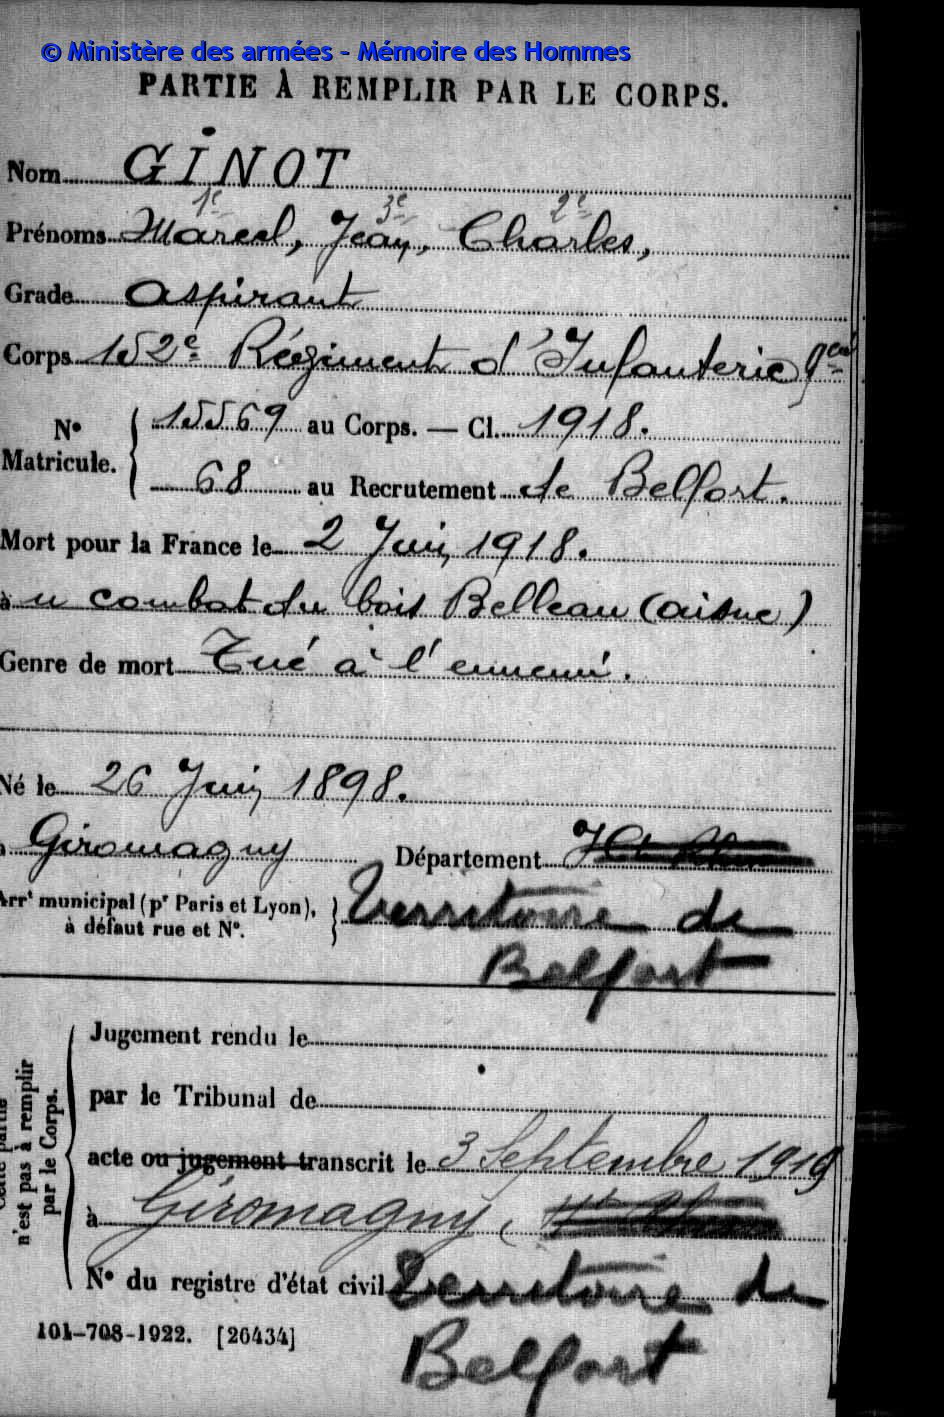 © Ministère des armées - Mémoire des Hommes
PARTIE À REMPLIR PAR LE CORPS.
Nom GINOT
1e 3e 2e
Prénoms Marcel, Jean, Charles,
Grade Aspirant
Corps 152e Régiment d'Infanterie
15569 au Corps. — Cl. 1918.
N° Matricule.
68 au Recrutement de Belfort.
Mort pour la France le 2 Juin 1918.
à u combat du bois Belleau (aisne)
Genre de mort Tué à l'ennemi.
Né le 26 Juin 1898.
à Giromagny Département Ht Rhin
Arrt municipal (pr Paris et Lyon), à défaut rue et N°.
Territoire de
Belfort
Cette partie n'est pas à remplir par le Corps.
Jugement rendu le
par le Tribunal de
acte ou jugement transcrit le 3 Septembre 1919
à Giromagny (Ht Rhin
N° du registre d'état civil Territoire de
Belfort
101-708-1922. [26434]